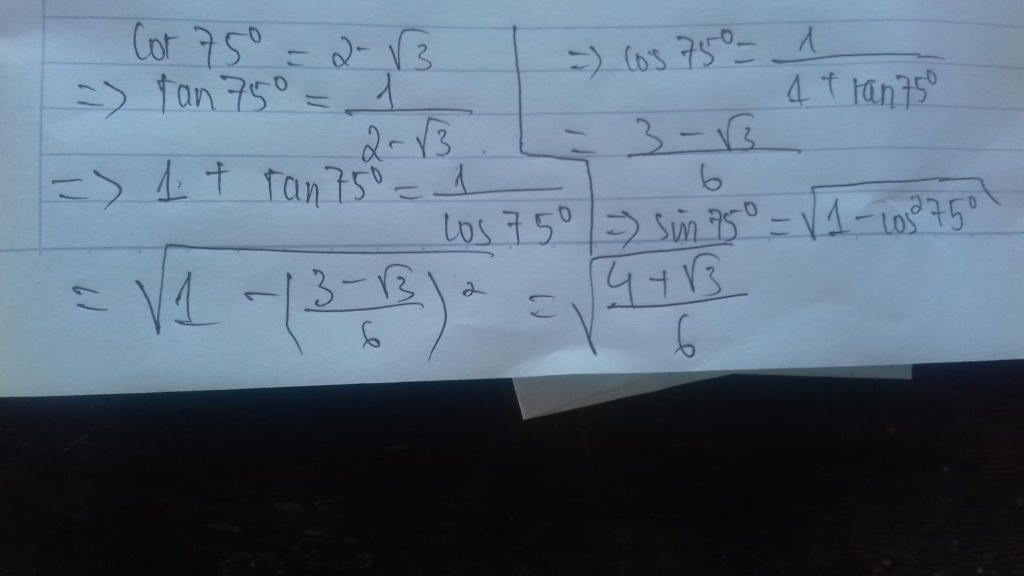 cot 75° = 2 - √3
=> tan 75° = 1/(2 - √3).
=> 1 + tan 75° = 1/(cos 75°)
=> cos 75° = 1/(1 + tan 75°)
= (3 - √3)/6
=> sin 75° = √(1 - cos² 75°)
= √(1 - ((3 - √3)/6)²) = √((4 + √3)/6)